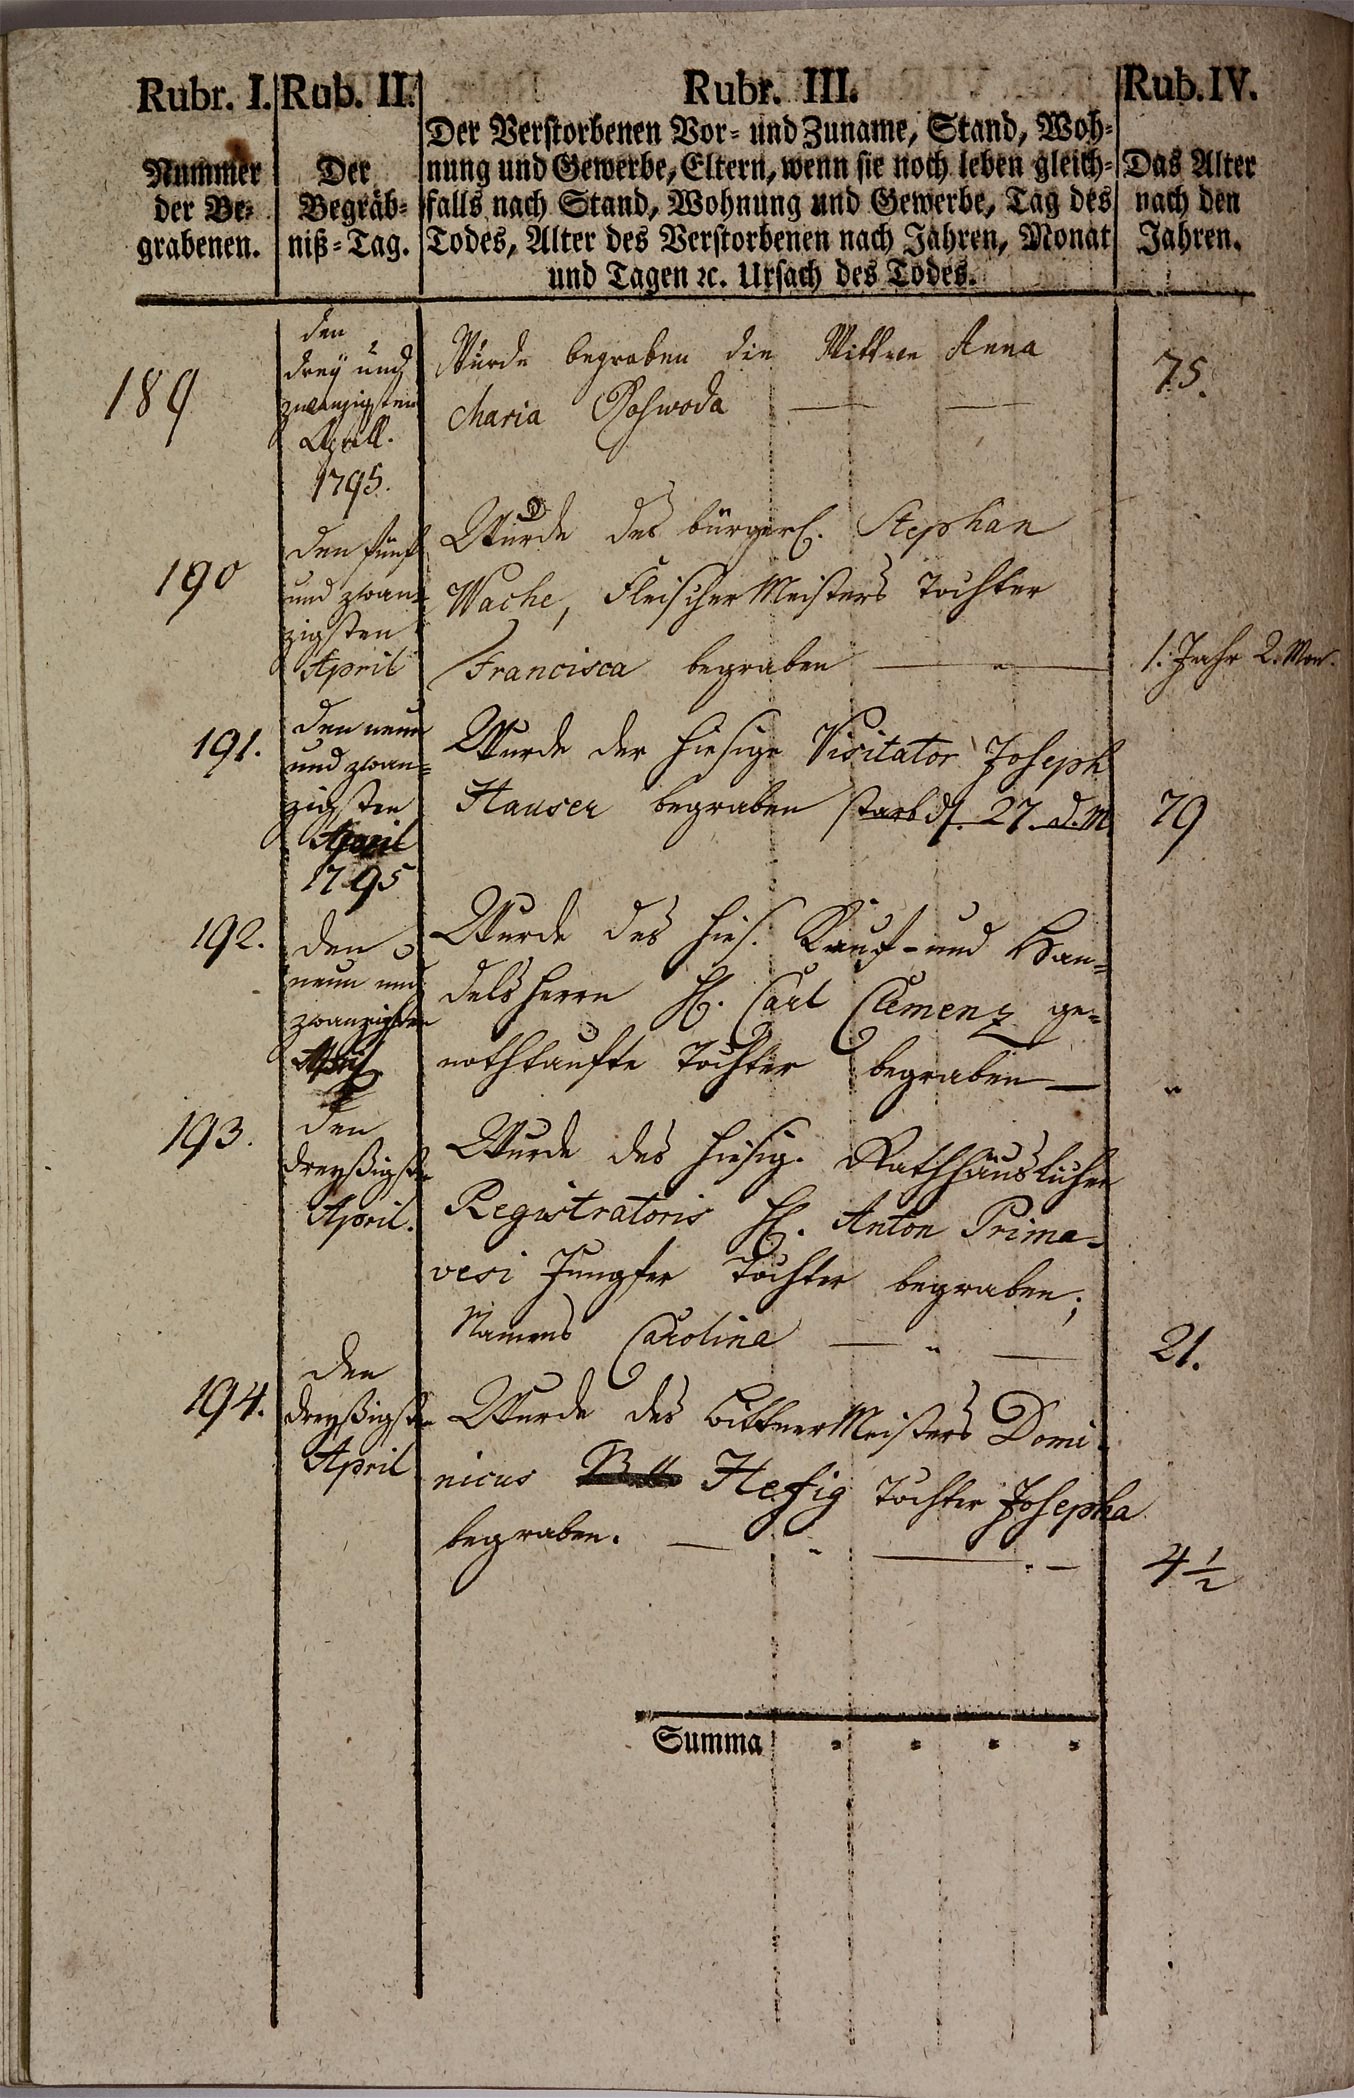 Rubr. I. Rub. II. Rubr. III. Rub. IV.
Nummer der Be-
grabenen.
Der
Begräb-
niß-Tag.
Der Verstorbenen Vor- und Zuname, Stand, Woh-
nung und Gewerbe, Eltern, wenn sie noch leben gleich-
falls nach Stand, Wohnung und Gewerbe, Tag des
Todes, Alter des Verstorbenen nach Jahren, Monat
und Tagen ꝛc. Ursach des Todes.
Das Alter
nach den
Jahren.
189
den
drey und
zwanzigsten
Aprill.
1795.
Wurde begraben die Wittwe Anna
Maria
75.
190
den fünf
und zwan-
zigsten
April
Wurde des bürgerl. Stephan
Wache, Fleischer Meisters Tochter
Francisca begraben
1. Jahr 2. Mon.
191.
den neun
und zwan-
zigsten
April
1795
Wurde der hiesige Visitator Joseph
Hauser begraben starb d. 27. d. M.
79
192.
den
neun und
zwanzigsten
April
Wurde des hies. Kauf- und Han-
dels herrn H. Carl Clemenz ge-
nothtaufte Tochter begraben —
"
193.
den
dreyßigste
April.
Wurde des hiesig. Rathhäuslichen
Registratoris H. Anton Prima-
vesi Jungfer Tochter begraben;
Namens Carolina — " —
21.
194.
den
dreyßigste
April
Wurde des Bittner Meisters Domi-
nicus Hefig Tochter Josepha
begraben. — " —
4 1/2
Summa - - - -